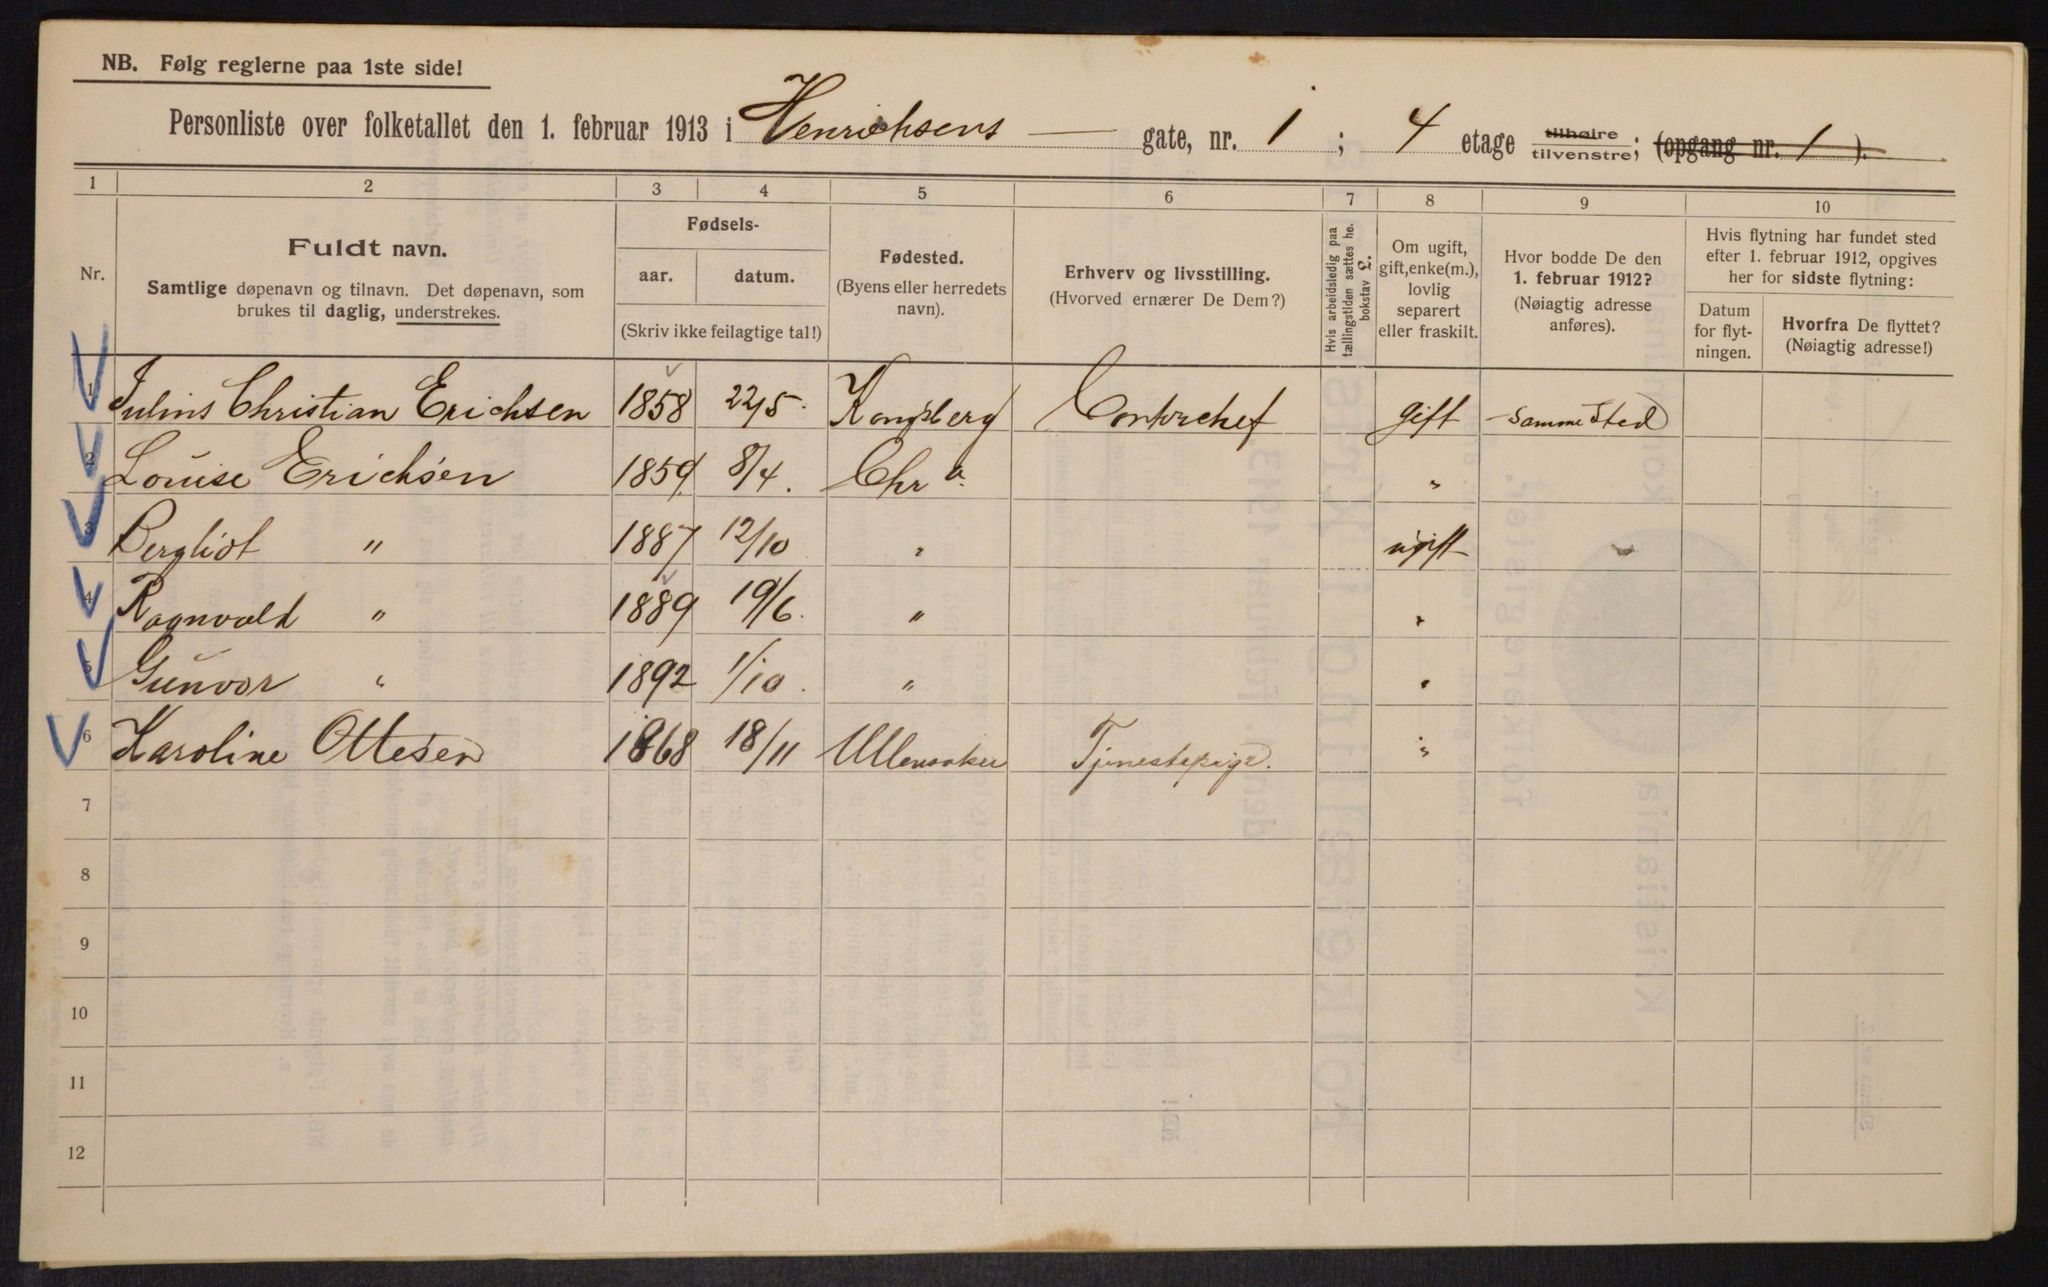 NB. Følg reglerne paa 1ste side!
Personliste over folketallet den 1. februar 1913 i Henrichsens gate, nr. 1; 4 etage tilhøire tilvenstre; (opgang nr. 1).
1 2 3 4 5 6 7 8 9 10
Nr.
Fuldt navn.
Samtlige døpenavn og tilnavn. Det døpenavn, som
brukes til daglig, understrekes.
Fødsels-
aar. datum.
(Skriv ikke feilagtige tal!)
Fødested.
(Byens eller herredets
navn).
Erhverv og livsstilling.
(Hvorved ernærer De Dem?)
Hvis arbeidsledig paa
tællingstiden sættes he.
bokstav L.
Om ugift,
gift, enke(m.),
lovlig
separert
eller fraskilt.
Hvor bodde De den
1. februar 1912?
(Nøiagtig adresse
anføres).
Hvis flytning har fundet sted
efter 1. februar 1912, opgives
her for sidste flytning:
Datum
for flyt-
ningen.
Hvorfra De flyttet?
(Nøiagtig adresse!)
1 Julius Christian Erichsen 1858 22/5 Kongsberg Contorchef gift samme sted
2 Louise Erichsen 1859 8/4. Chr a. "
3 Bergliot " 1887 12/10 " ugift "
4 Ragnvald " 1889 19/6. " "
5 Gunvor " 1892 1/10. " "
6 Karoline Ottesen 1868 18/11 Ullensaker Tjenestepige. "
7
8
9
10
11
12